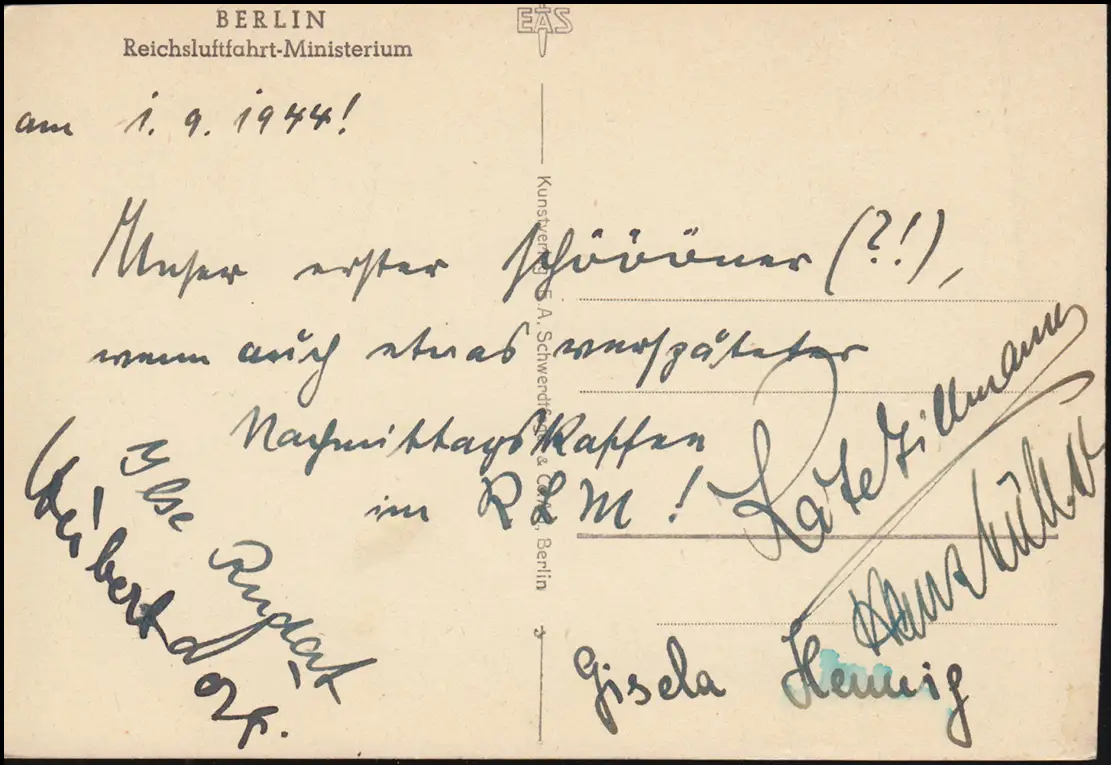 BERLIN
Reichsluftfahrt-Ministerium
EAS
am 1. 9. 1944!
Unser erster schöööner (?!),
wenn auch etwas verspäteter
Nachmittagskaffee
im RLM!
Kunstverlag E.A. Schwerdtfeger & Co. AG, Berlin
Käte Tillmann
Müller
Ilse Rudat
Gisela Hennig